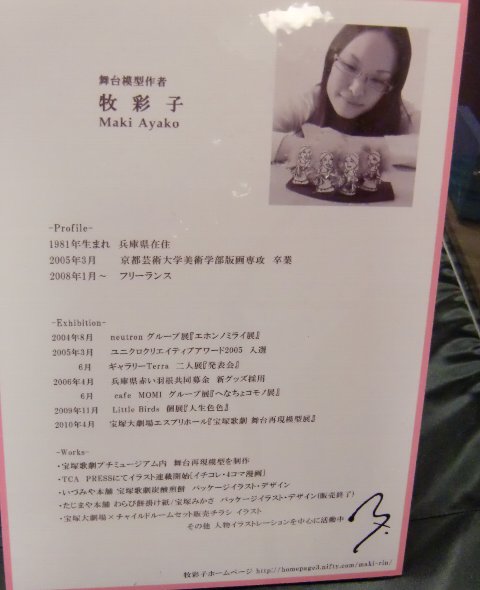 舞台模型作者
牧 彩 子
Maki Ayako
-Profile-
1981年生まれ 兵庫県在住
2005年3月 京都芸術大学美術学部版画専攻 卒業
2008年1月～ フリーランス
-Exhibition-
2004年8月 neutron グループ展『エホンノミライ展』
2005年3月 ユニクロクリエイティブアワード2005 入選
6月 ギャラリーTerra 二人展『発表会』
2006年4月 兵庫県赤い羽根共同募金 新グッズ採用
6月 cafe MOMI グループ展『へなちょコモノ展』
2009年11月 Little Birds 個展『人生色色』
2010年4月 宝塚大劇場エスプリホール『宝塚歌劇 舞台再現模型展』
-Works-
・宝塚歌劇プチミュージアム内 舞台再現模型を制作
・TCA PRESSにてイラスト連載開始(イチコレ・4コマ漫画)
・いづみや本舗 宝塚歌劇炭酸煎餅 パッケージイラスト・デザイン
・たじまや本舗 わらび餅掛け紙/宝塚みかさ パッケージイラスト・デザイン(販売終了)
・宝塚大劇場×チャイルドルームセット販売チラシ イラスト
その他 人物イラストレーションを中心に活動中
牧彩子ホームページ http://homepage3.nifty.com/maki-rin/